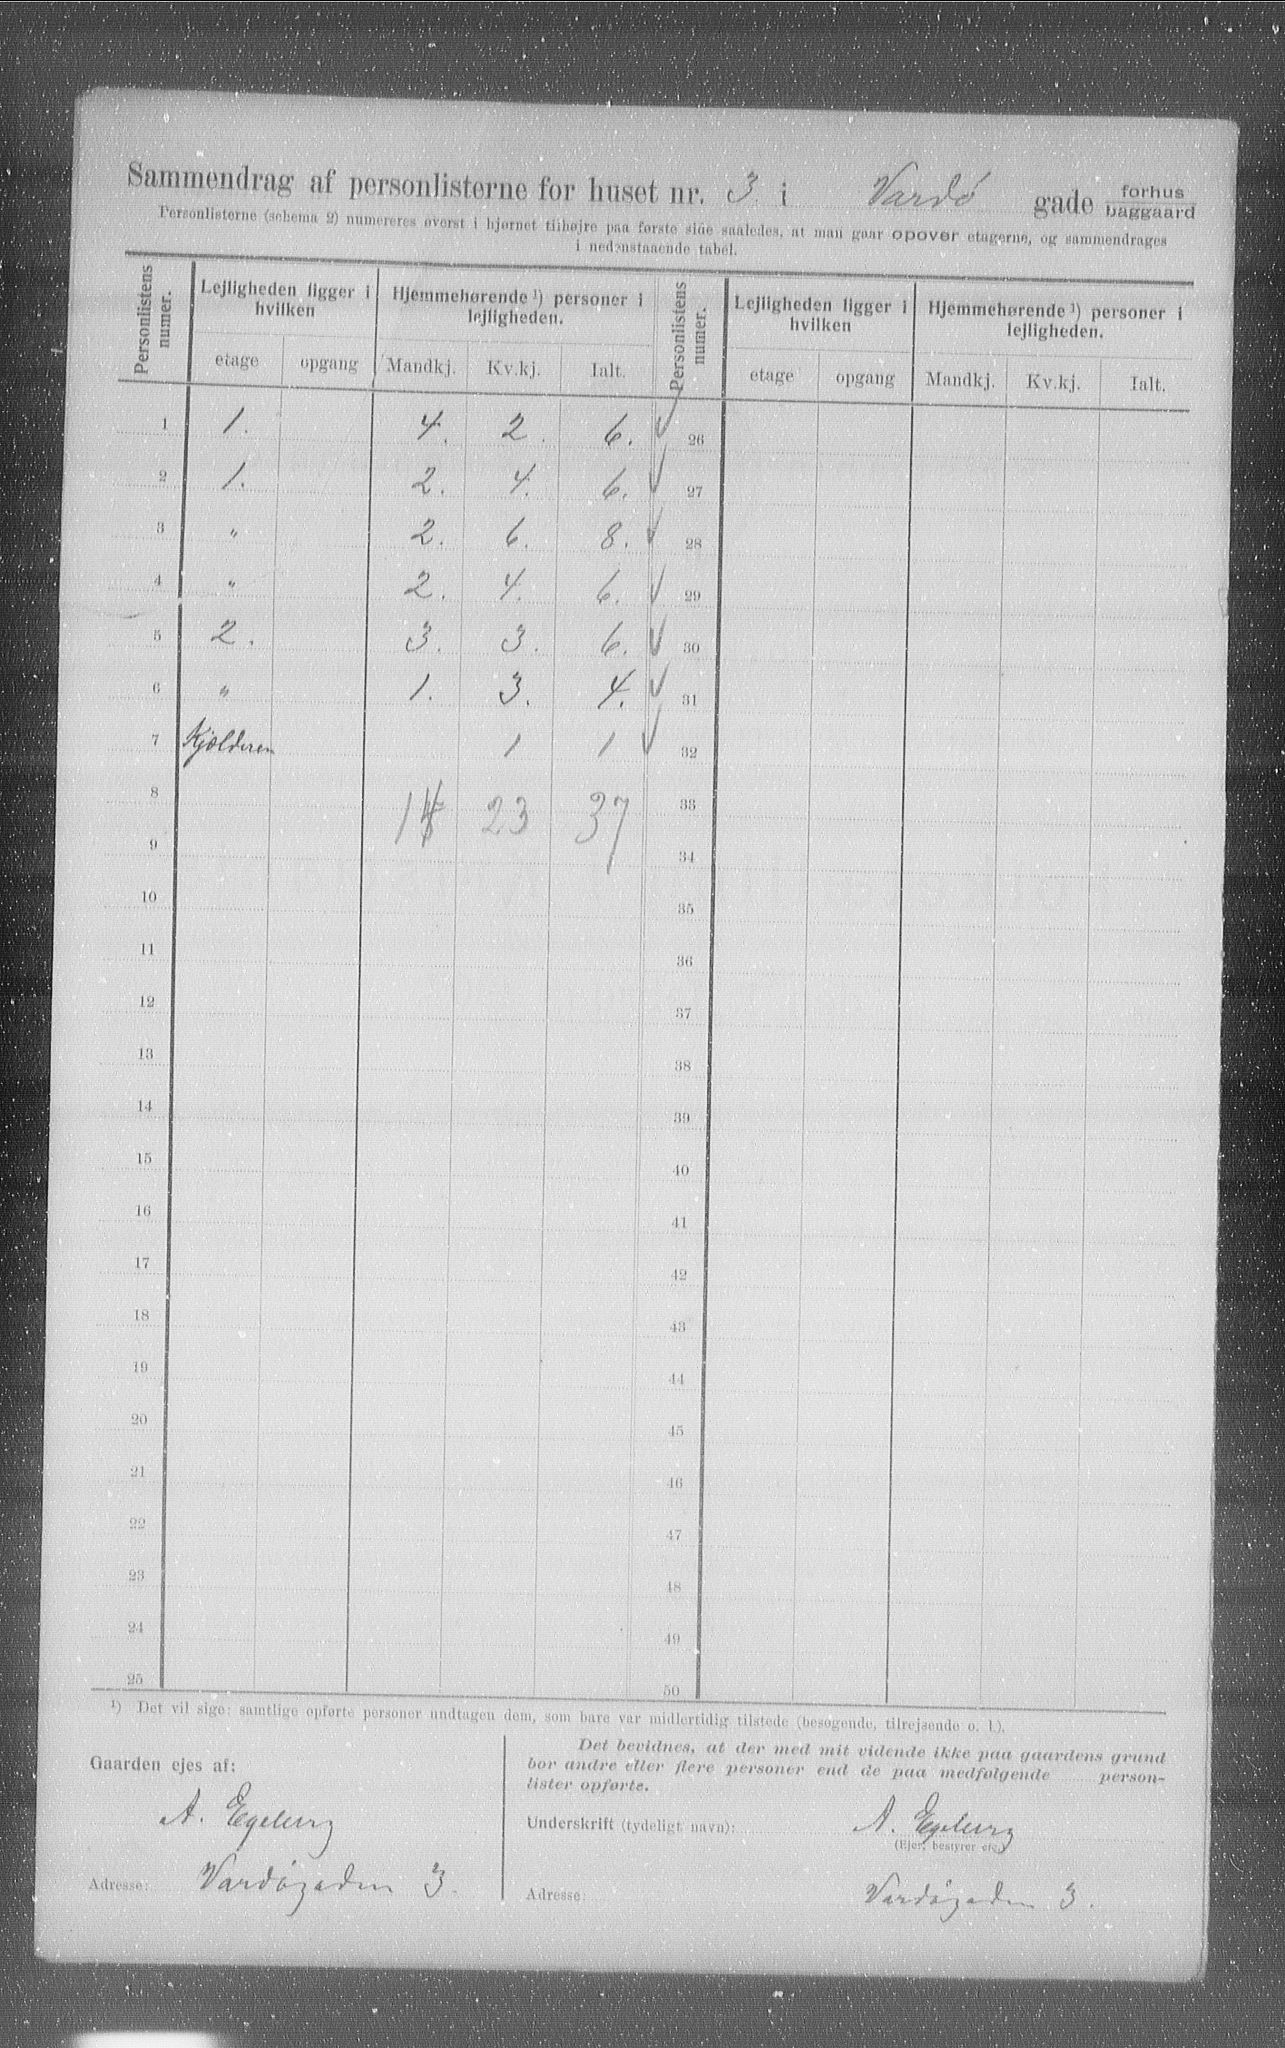 Sammendrag af personlisterne for huset nr. 3. i Vardø gade forhus
baggaard
Personlisterne (schema 2) numereres øverst i hjørnet tilhøjre paa første side saaledes, at man gaar opover etagerne, og sammendrages
i nedenstaaende tabel.
Personlistens numer. Lejligheden ligger i hvilken Hjemmehørende ¹) personer i lejligheden. Personlistens numer. Lejligheden ligger i hvilken Hjemmehørende ¹) personer i lejligheden.
etage opgang Mandkj. Kv.kj. Ialt. etage opgang Mandkj. Kv.kj. Ialt.
1 1. 4. 2. 6. ✓ 26
2 1. 2. 4. 6. ✓ 27
3 " 2. 6. 8. ✓ 28
4 " 2. 4. 6. ✓ 29
5 2. 3. 3. 6. ✓ 30
6 " 1. 3. 4. ✓ 31
7 Kjælderen 1 1 ✓ 32
8 14 23 37 33
9 34
10 35
11 36
12 37
13 38
14 39
15 40
16 41
17 42
18 43
19 44
20 45
21 46
22 47
23 48
24 49
25 50
¹) Det vil sige: samtlige opførte personer undtagen dem, som bare var midlertidig tilstede (besøgende, tilrejsende o. l.).
Gaarden ejes af:
A. Egeberg
Adresse: Vardøgaden 3.
Det bevidnes, at der med mit vidende ikke paa gaardens grund
bor andre eller flere personer end de paa medfølgende person-
lister opførte.
Underskrift (tydeligt navn): A. Egeberg
(Ejer, bestyrer etc.)
Adresse: Vardøgaden 3.